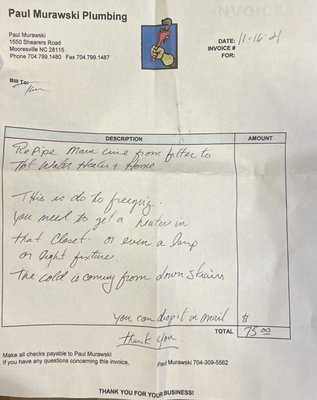 INVOICE
Paul Murawski Plumbing
Paul Murawski
1550 Shearers Road
Mooresville NC 28115
Phone 704.799.1480 Fax 704.799.1487
DATE: 11-16-21
INVOICE #
FOR:
Bill To:
Tim
DESCRIPTION AMOUNT
RePipe Main Line from filter to
Hot Water Heater + Home
This is do to freezing.
You need to get a heater in
that Closet. or even a lamp
or light fixture.
The cold is coming from down stairs
you can drop it in mail $
Thank you
TOTAL 75.00
Make all checks payable to Paul Murawski
If you have any questions concerning this invoice, Paul Murawski 704-309-5562
THANK YOU FOR YOUR BUSINESS!